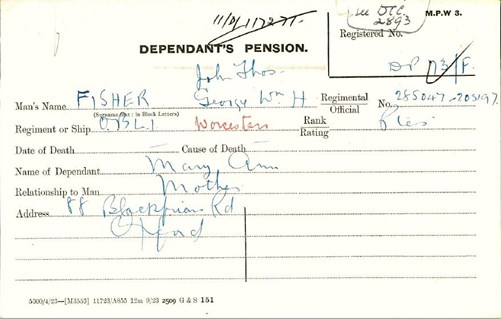 11/D/11727T.
see OTC.
2893
M.P.W 3.
Registered No.
DEPENDANT'S PENSION.
DP 73/F.
John Thos.
Man's Name FISHER George Wm H Regimental No. 285047 - 203197
(Surname first: in Block Letters) Official
Regiment or Ship O.B.L.I Worcesters Rank Ptes
Rating
Date of Death Cause of Death
Name of Dependant Mary Ann
Relationship to Man Mother
Address 88 Blackfriars Rd
Oxford
5000/4/23—[M3553] 11723/A855 12m 9/23 2509 G & S 151